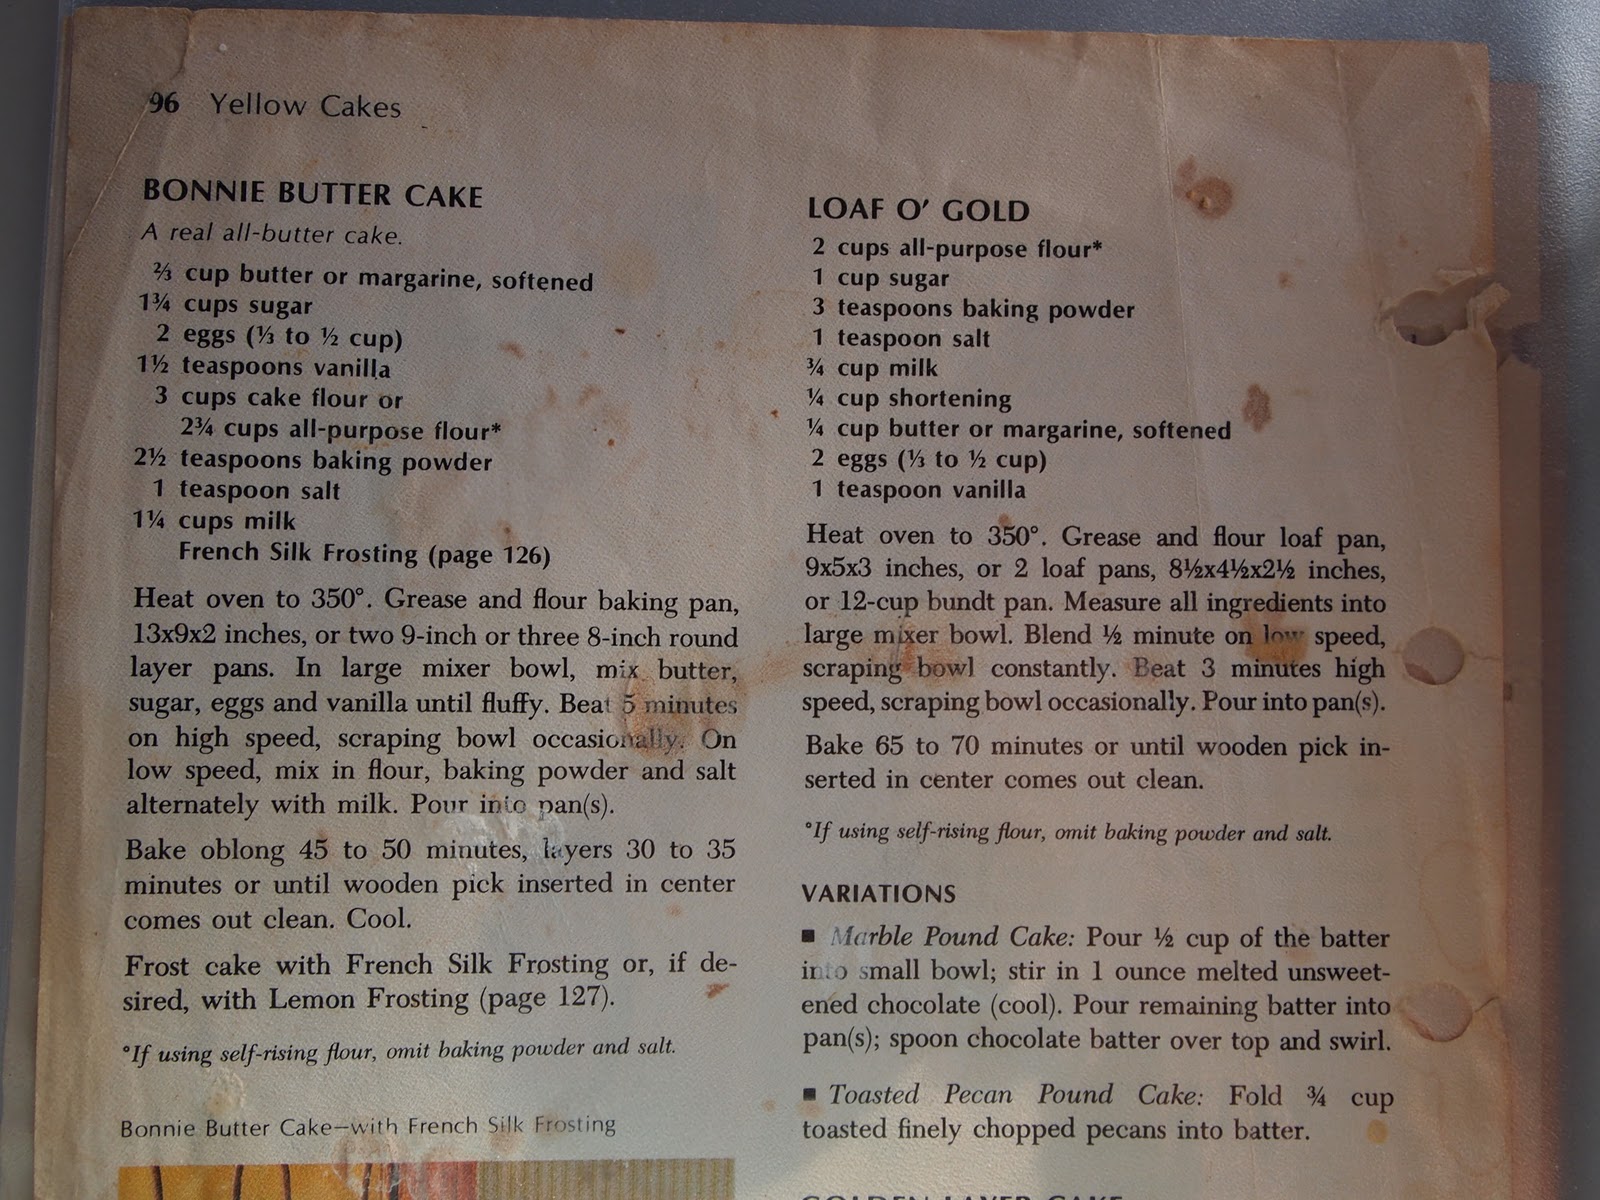 96 Yellow Cakes
BONNIE BUTTER CAKE
A real all-butter cake.
⅔ cup butter or margarine, softened
1¾ cups sugar
2 eggs (⅓ to ½ cup)
1½ teaspoons vanilla
3 cups cake flour or
2¾ cups all-purpose flour*
2½ teaspoons baking powder
1 teaspoon salt
1¼ cups milk
French Silk Frosting (page 126)
Heat oven to 350°. Grease and flour baking pan,
13x9x2 inches, or two 9-inch or three 8-inch round
layer pans. In large mixer bowl, mix butter,
sugar, eggs and vanilla until fluffy. Beat 5 minutes
on high speed, scraping bowl occasionally. On
low speed, mix in flour, baking powder and salt
alternately with milk. Pour into pan(s).
Bake oblong 45 to 50 minutes, layers 30 to 35
minutes or until wooden pick inserted in center
comes out clean. Cool.
Frost cake with French Silk Frosting or, if de-
sired, with Lemon Frosting (page 127).
*If using self-rising flour, omit baking powder and salt.
Bonnie Butter Cake—with French Silk Frosting
LOAF O' GOLD
2 cups all-purpose flour*
1 cup sugar
3 teaspoons baking powder
1 teaspoon salt
¾ cup milk
¼ cup shortening
¼ cup butter or margarine, softened
2 eggs (⅓ to ½ cup)
1 teaspoon vanilla
Heat oven to 350°. Grease and flour loaf pan,
9x5x3 inches, or 2 loaf pans, 8½x4½x2½ inches,
or 12-cup bundt pan. Measure all ingredients into
large mixer bowl. Blend ½ minute on low speed,
scraping bowl constantly. Beat 3 minutes high
speed, scraping bowl occasionally. Pour into pan(s).
Bake 65 to 70 minutes or until wooden pick in-
serted in center comes out clean.
*If using self-rising flour, omit baking powder and salt.
VARIATIONS
■ Marble Pound Cake: Pour ½ cup of the batter
into small bowl; stir in 1 ounce melted unsweet-
ened chocolate (cool). Pour remaining batter into
pan(s); spoon chocolate batter over top and swirl.
■ Toasted Pecan Pound Cake: Fold ¾ cup
toasted finely chopped pecans into batter.
GOLDEN LAYER CAKE